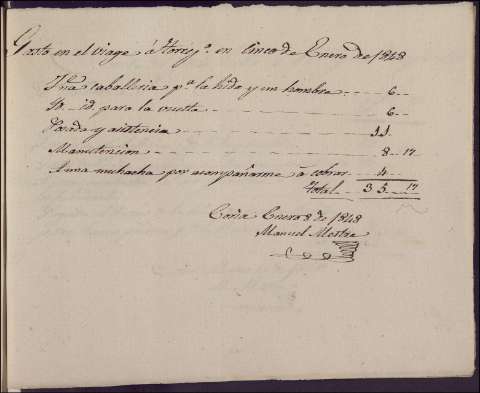 Gasto en el viage á Torrejº en cinco de Enero de 1848
Una caballeria pª la hida y un hombre 6
Id. id. para la vuelta 6
Posada y asistencia 11
Manutencion 8 17
A una muchacha por acompañarme á cobrar 4
Total 35 17
Coria Enero 8 de 1848
Manuel Mestre